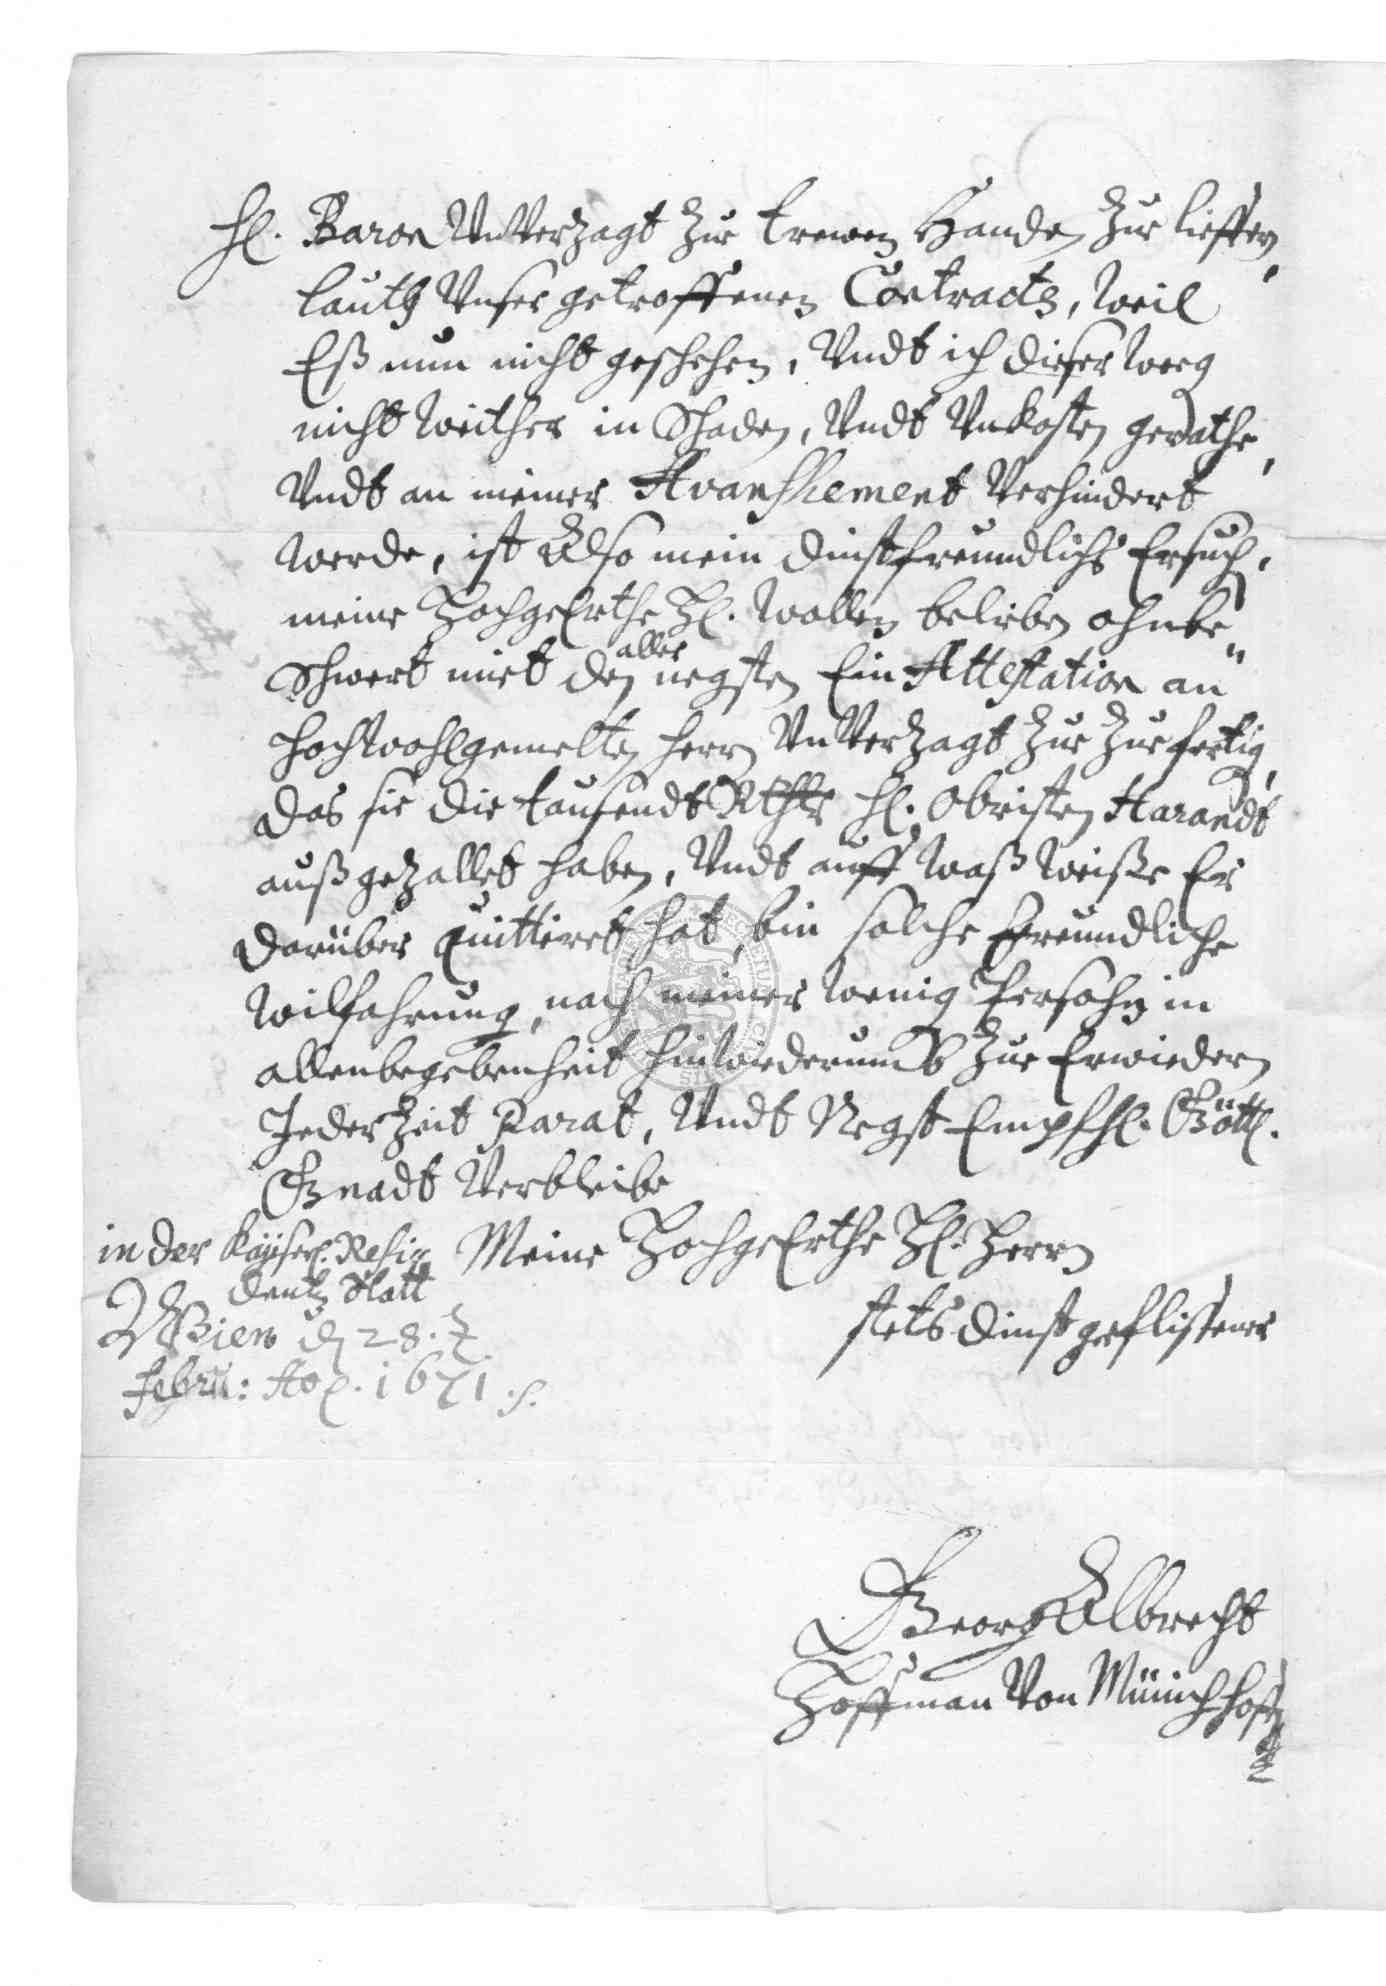 Hl. Baron Unverzagt Zue trewen Handen Zue lieffern,
lauth Unser getroffenen Contracts, weil
Eß nun nicht geschehen, Undt ich dieserweg
nicht weither in Schaden, Undt Unkosten gerathe,
Undt an meiner Avanssement Verhindert
werde, ist Also mein dinstfreundlichs Ersuch,
meine HochgeErthe Hl. wollen belieben ohnbe„
Schwert mict den aller negsten Ein Attestation an
Hochwohlgemelten Herrn Unverzagt Zue Zuefertig,
das sie die tausendt Rthlr Hl. Obristen Harandt
außgezallet haben, Undt auff waß weiße Er
darüber quittiret hat, bin solche freundliche
wilfahrung, nach meiner wenig Persohn in
allenbegebenheit hinwiederumb Zue Erwiedern
Jederzeit Parat, Undt Negst Empfhl. Göttl.
Gnadt Verbleibe
Meine HochgeErthe Hl. Herrn
in der Kayserl. Resi„
dentz Statt
Wien d 28. t
febru: Ao. 1671.
stets dinst geflissener
Georg Albrecht
Hoffman Von Münichhoffen